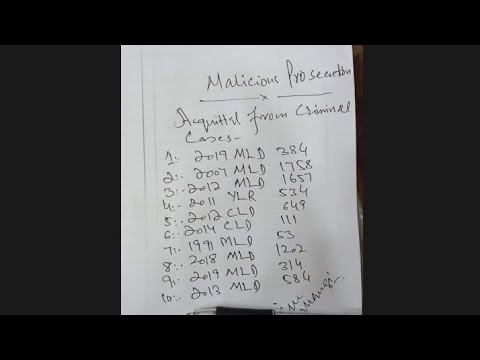 Malicious Prosecution
x
Acquittal from Criminal
Cases-
1:- 2019 MLD 384
2:- 2007 MLD 1758
3:- 2012 MLD 1657
4:- 2011 YLR 534
5:- 2012 CLD 649
6:- 2014 CLD 111
7:- 1991 MLD 53
8:- 2018 MLD 1202
9:- 2019 MLD 314
10:- 2013 MLD 584